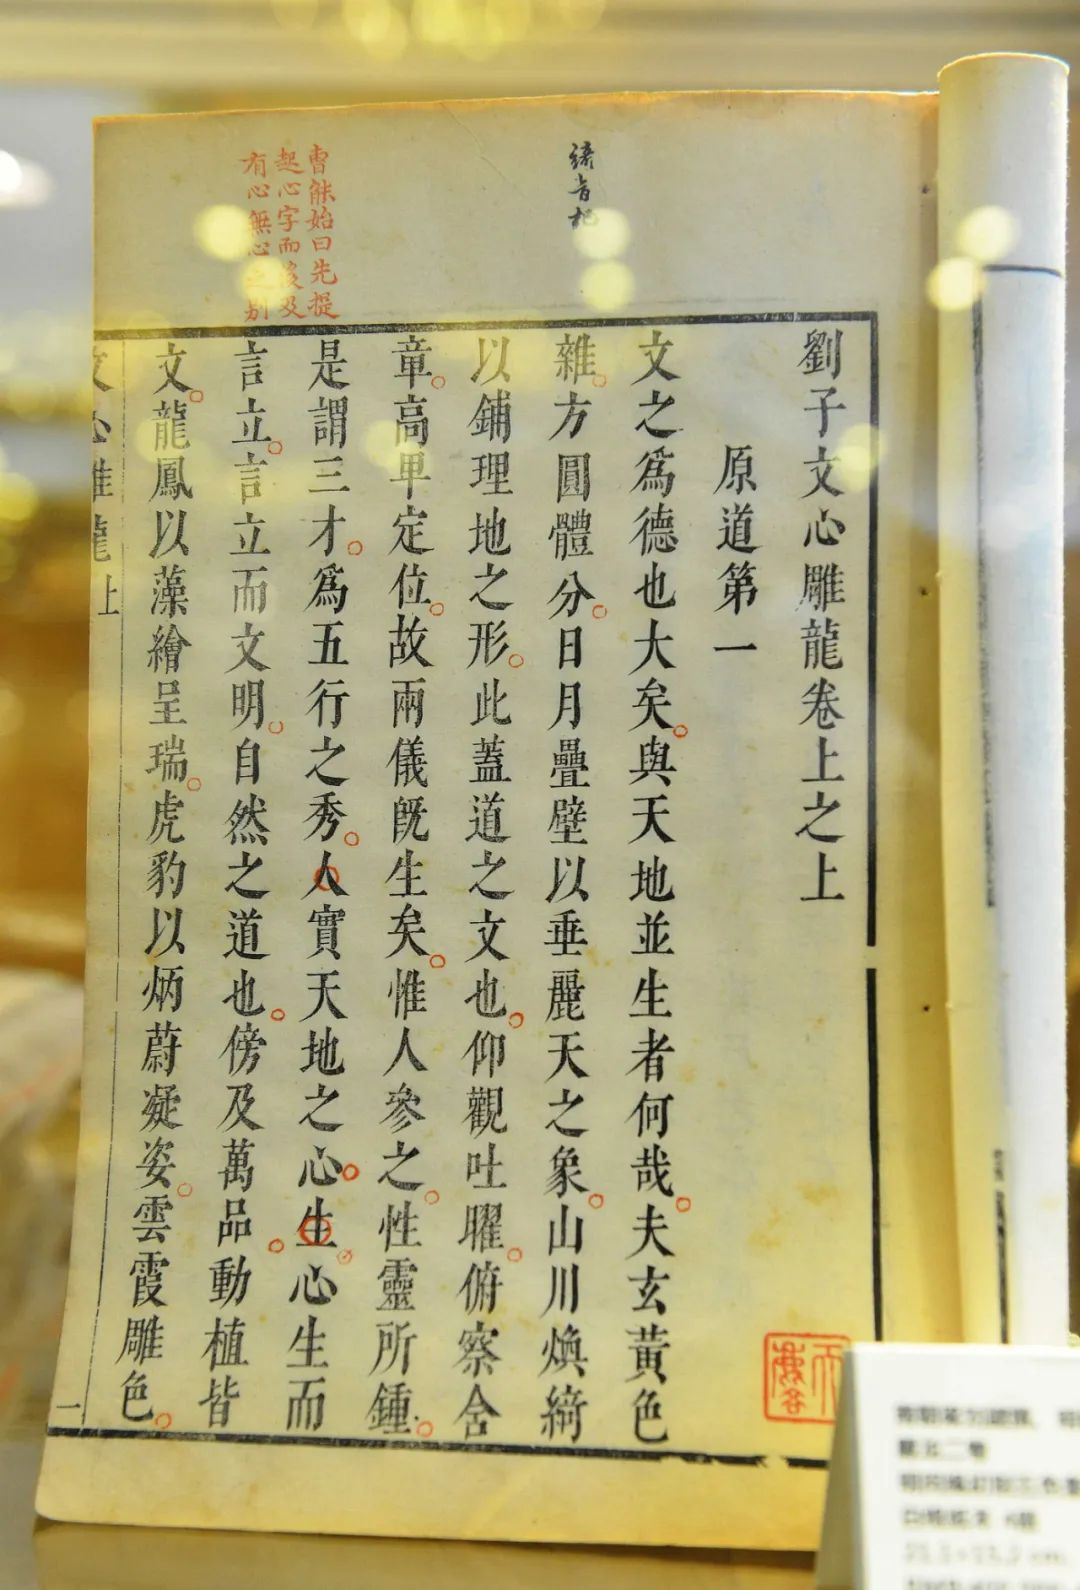 劉子文心雕龍卷上之上
原道第一
文之爲德也大矣與天地並生者何哉夫玄黃色
雜方圓體分日月疊壁以垂麗天之象山川煥綺
以鋪理地之形此蓋道之文也仰觀吐曜俯察含
章高卑定位故兩儀旣生矣惟人參之性靈所鍾
是謂三才爲五行之秀人實天地之心生心生而
言立言立而文明自然之道也傍及萬品動植皆
文龍鳳以藻繪呈瑞虎豹以炳蔚凝姿雲霞雕色
文心雕龍上
一
曹能始曰先提
起心字而後及
有心無心之别